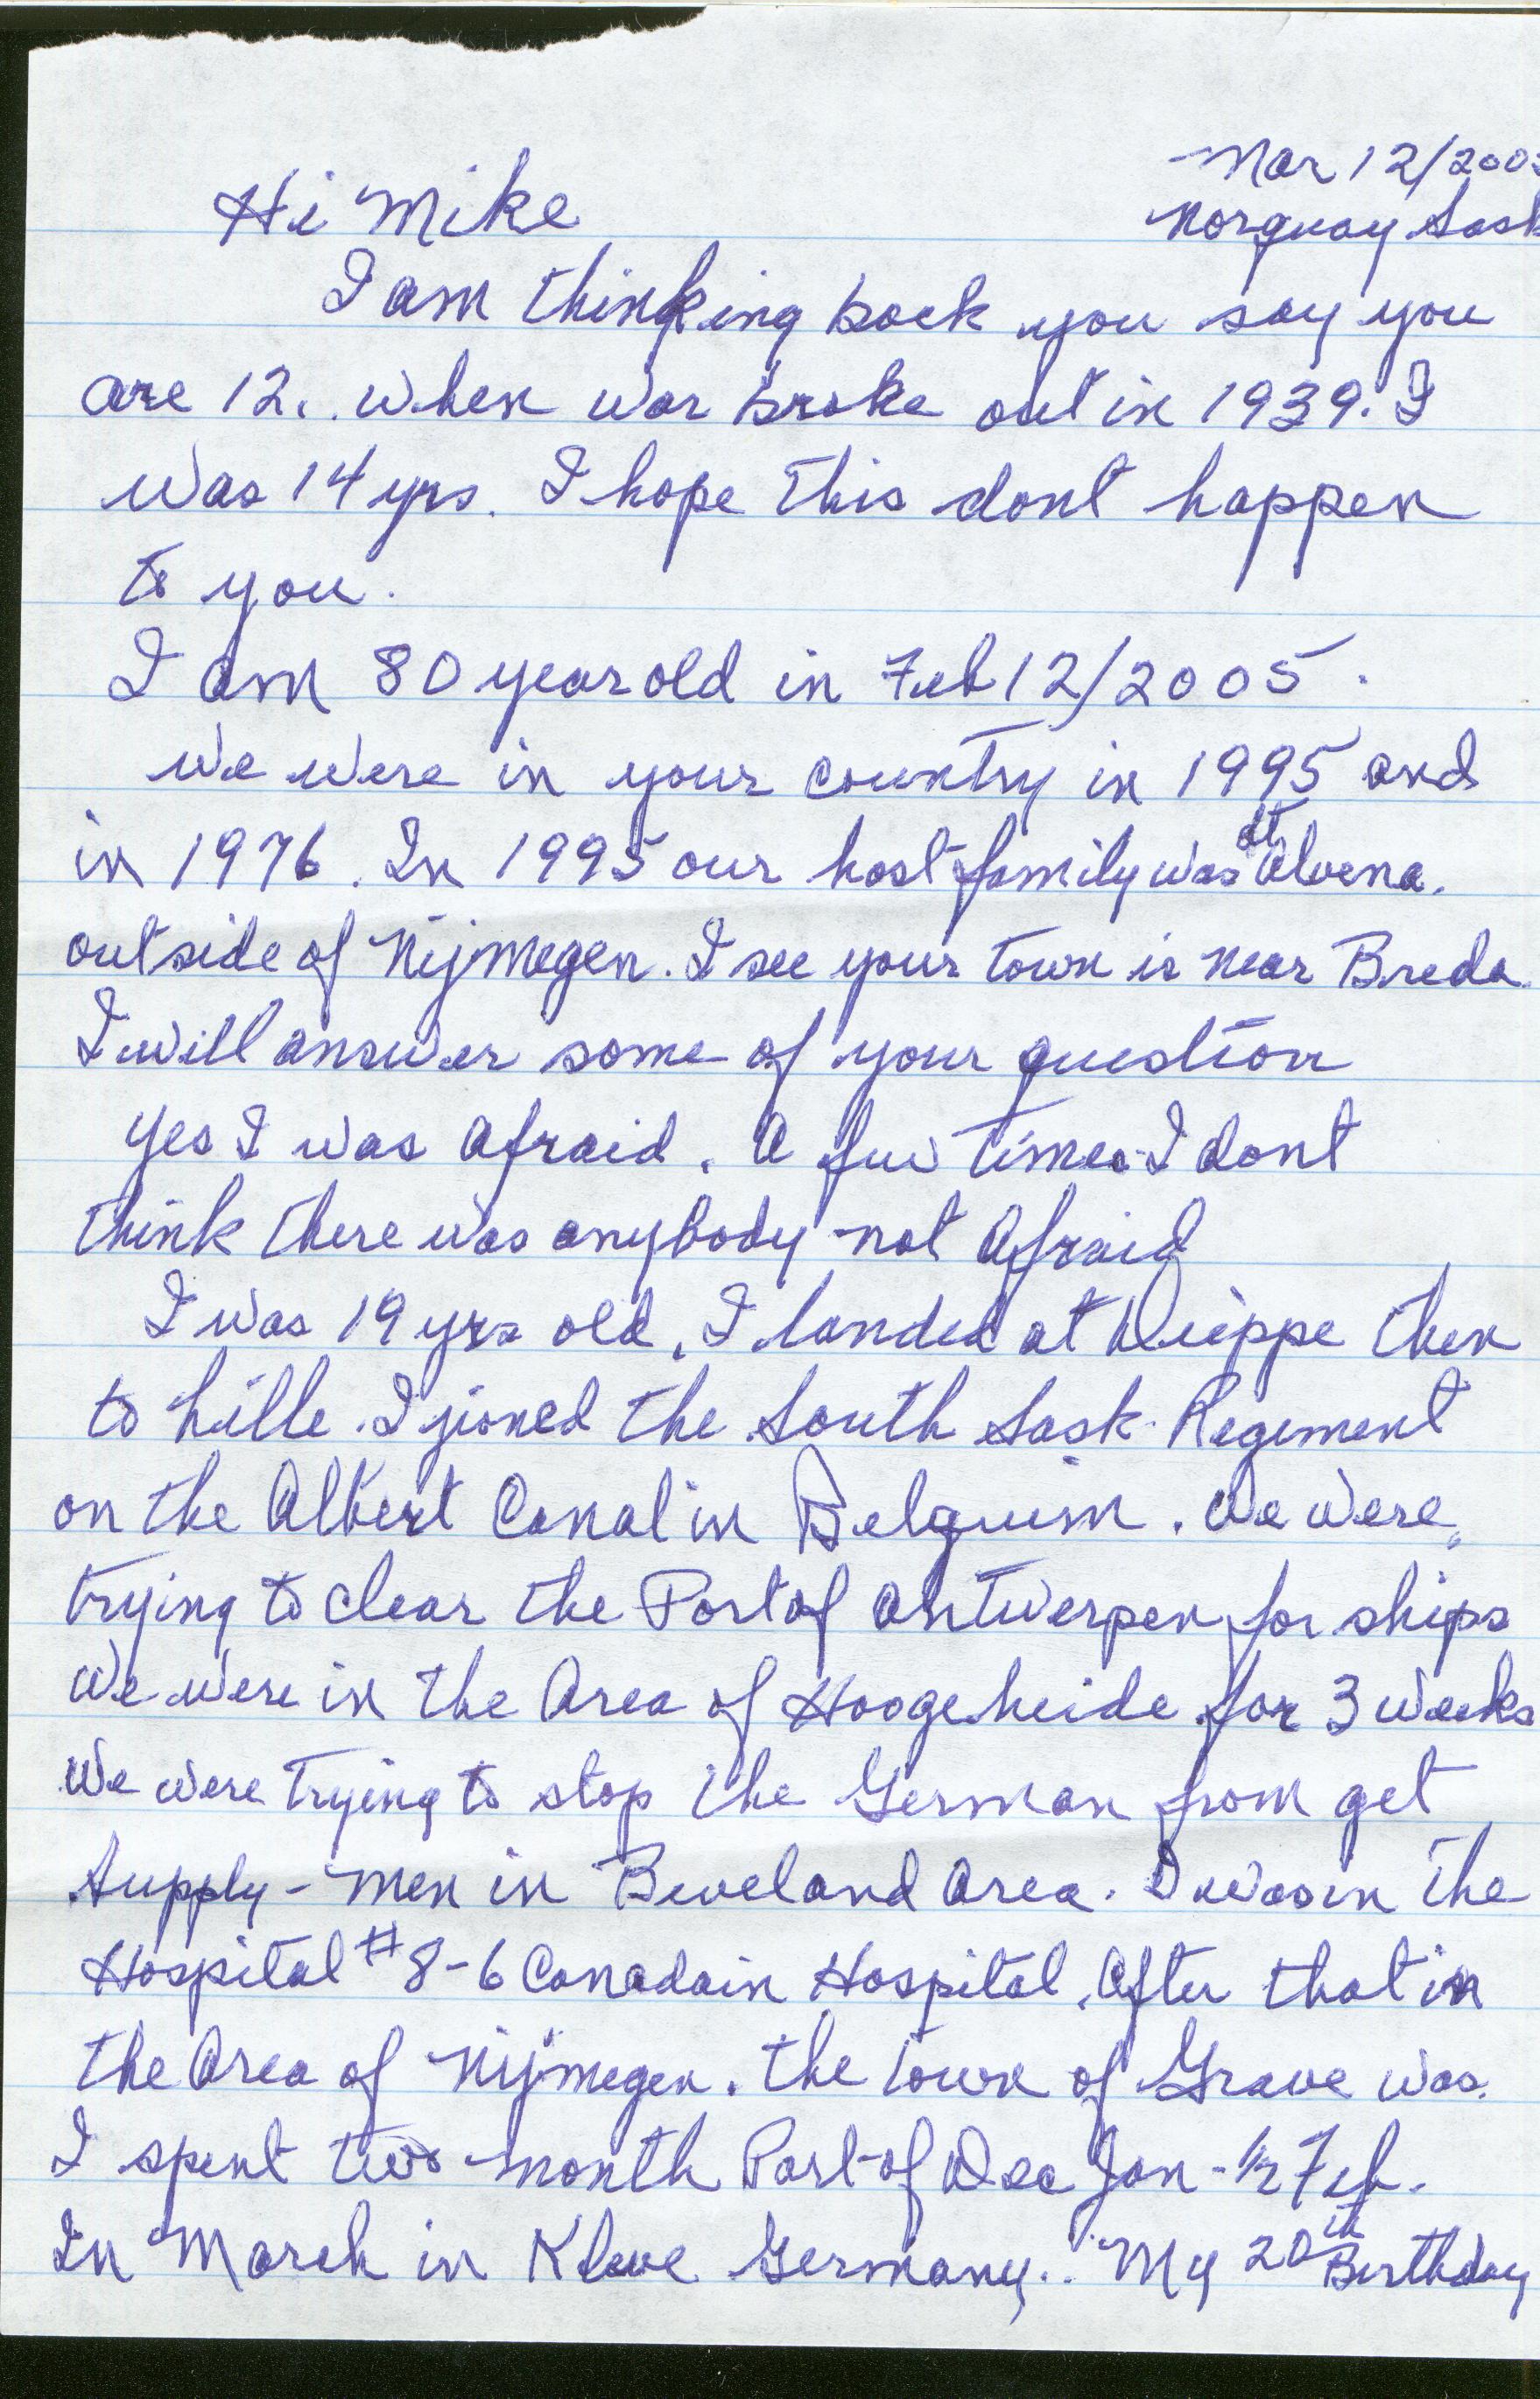 Mar 12/2005
Norquay Sask
Hi Mike
I am thinking back you say you
are 12. when war broke out in 1939. I
was 14 yrs. I hope this dont happen
to you.
I am 80 year old in Feb 12/2005.
we were in your country in 1995 and
in 1976. In 1995 our host family was at Alvena.
outside of Nijmegen. I see your town is near Breda.
I will answer some of your question
yes I was afraid. A few times I dont
think there was anybody not afraid
I was 19 yrs old, I landed at Dieppe then
to Lille. I jioned the South Sask. Regiment
on the Albert Canal in Belguim. We were,
trying to clear the Port of Antwerpen for ships
We were in the Area of Hoogeheide for 3 weeks
We were trying to stop the German from get
supply - men in Beveland Area. I was in the
Hospital #8-6 Canadain Hospital, After that in
the Area of Nijmegen. the town of Grave was.
I spent two month Part of Dec Jan - 1/2 Feb.
In March in Kleve Germany.. My 20th Birthday